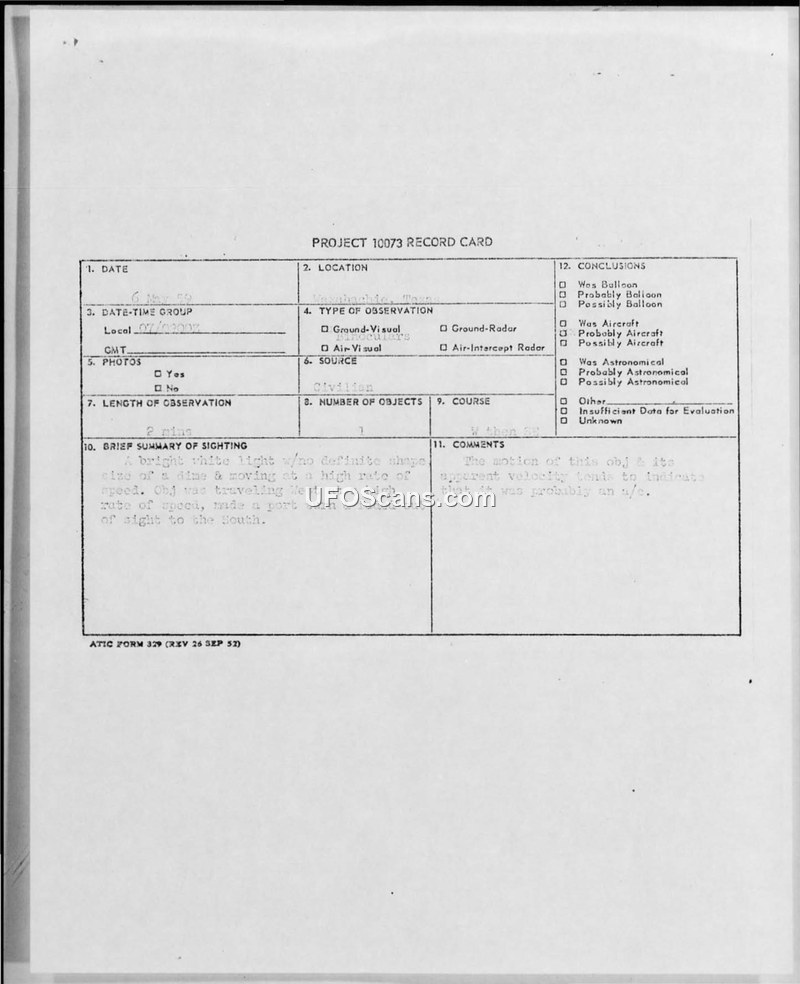 PROJECT 10073 RECORD CARD
1. DATE
6 May 59
2. LOCATION
Waxahachie, Texas
3. DATE-TIME GROUP
Local
GMT
4. TYPE OF OBSERVATION
☐ Ground-Visual ☐ Ground-Radar
Binoculars
☐ Air-Visual ☐ Air-Intercept Radar
5. PHOTOS
☐ Yes
☐ No
6. SOURCE
Civilian
7. LENGTH OF OBSERVATION
2 mins
8. NUMBER OF OBJECTS
1
9. COURSE
W then
10. BRIEF SUMMARY OF SIGHTING
A bright white light w/no definite shape
size of a dime & moving at a high rate of
speed. Obj was traveling high
rate of speed, made a port turn
of sight to the South.
11. COMMENTS
The motion of this obj & its
apparent velocity tends to indicate
that it was probably an a/c.
12. CONCLUSIONS
☐ Was Balloon
☐ Probably Balloon
☐ Possibly Balloon
☐ Was Aircraft
☐ Probably Aircraft
☐ Possibly Aircraft
☐ Was Astronomical
☐ Probably Astronomical
☐ Possibly Astronomical
☐ Other
☐ Insufficient Data for Evaluation
☐ Unknown
UFOScans.com
ATIC FORM 329 (REV 26 SEP 52)